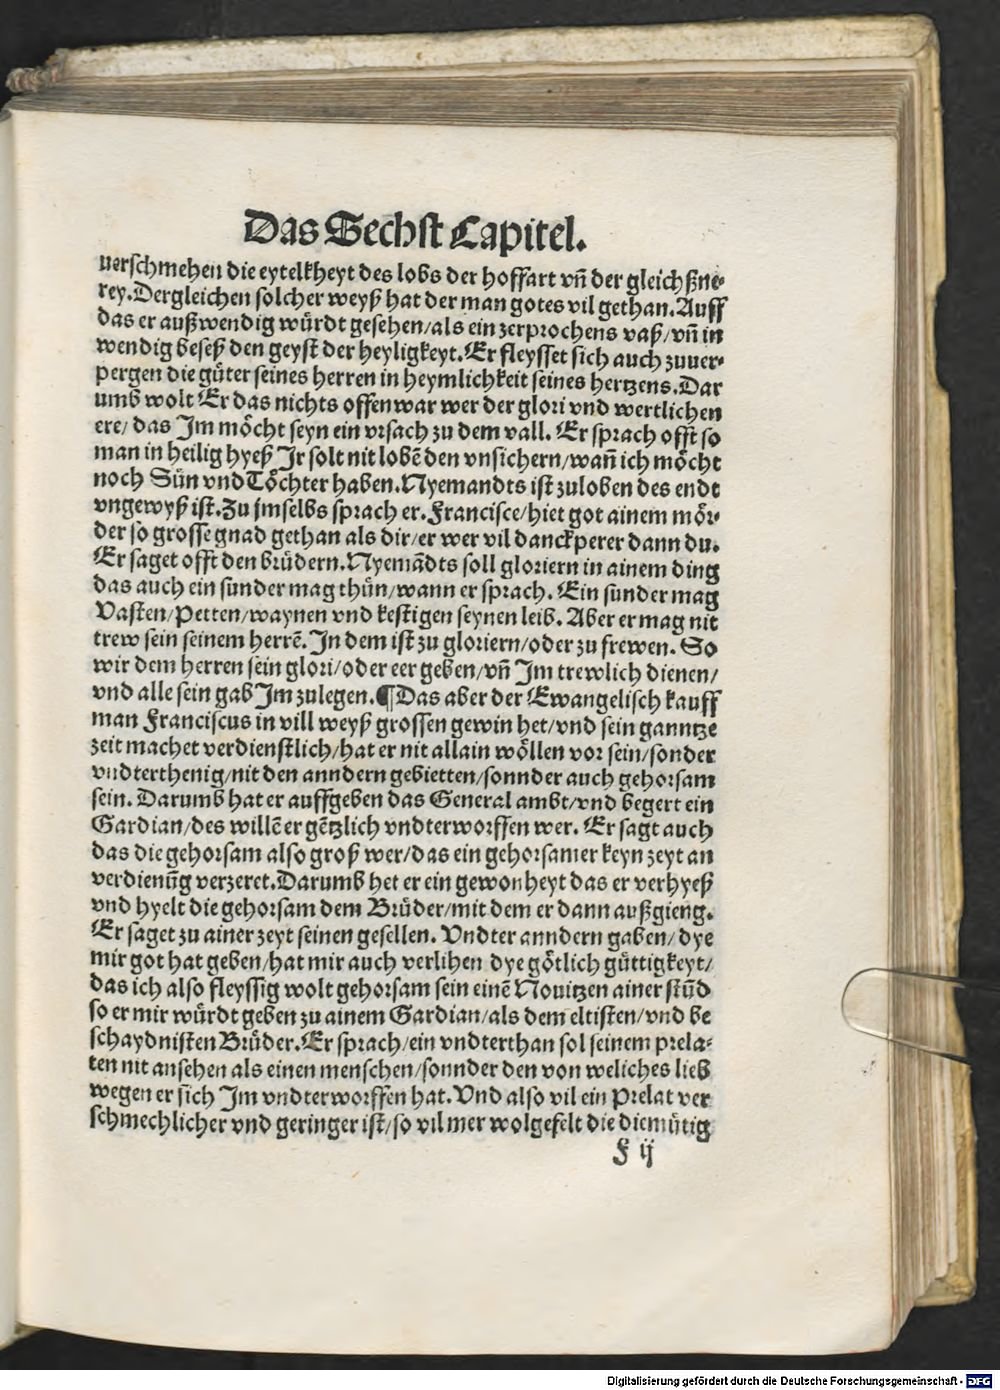 Das Sechst Capitel.
verschmehen die eytelkheyt des lobs der hoffart vñ der gleichßne-
rey. Dergleichen solcher weyß hat der man gotes vil gethan. Auff
das er außwendig würdt gesehen/als ein zerprochens vaß/vñ in
wendig beseß den geyst der heyligkeyt. Er fleysset sich auch zuuer-
pergen die güter seines herren in heymlichkeit seines hertzens. Dar
umb wolt Er das nichts offenwar wer der glori vnd wertlichen
ere/ das Im möcht seyn ein vrsach zu dem vall. Er sprach offt so
man in heilig hyeß Ir solt nit lobẽ den vnsichern/wañ ich möcht
noch Sün vnd Töchter haben. Nyemandts ist zuloben des endt
vngewyß ist. Zu jmselbs sprach er. Francisce/hiet got ainem mör-
der so grosse gnad gethan als dir/er wer vil danckperer dann du.
Er saget offt den brüdern. Nyemãdts soll gloriern in ainem ding
das auch ein sunder mag thün/wann er sprach. Ein sunder mag
Vasten/Petten/waynen vnd kestigen seynen leib. Aber er mag nit
trew sein seinem herrẽ. In dem ist zu gloriern/oder zu frewen. So
wir dem herren sein glori/oder eer geben/vñ Im trewlich dienen/
vnd alle sein gab Im zulegen. ¶Das aber der Ewangelisch kauff
man Franciscus in vill weyß grossen gewin het/vnd sein ganntze
zeit machet verdienstlich/hat er nit allain wöllen vor sein/sonder
vndterthenig/nit den anndern gebietten/sonnder auch gehorsam
sein. Darumb hat er auffgeben das General ambt/vnd begert ein
Gardian/des willẽ er gẽtzlich vndterworffen wer. Er sagt auch
das die gehorsam also groß wer/das ein gehorsamer keyn zeyt an
verdienũg verzeret. Darumb het er ein gewonheyt das er verhyeß
vnd hyelt die gehorsam dem Brüder/mit dem er dann außgieng.
Er saget zu ainer zeyt seinen gesellen. Vndter anndern gaben/dye
mir got hat geben/hat mir auch verlihen dye götlich güttigkeyt/
das ich also fleyssig wolt gehorsam sein einẽ Nouitzen ainer stũd
so er mir würdt geben zu ainem Gardian/als dem eltisten/vnd be
schaydnisten Brüder. Er sprach/ein vndterthan sol seinem prela-
ten nit ansehen als einen menschen/sonnder den von weliches lieb
wegen er sich Im vndterworffen hat. Vnd also vil ein Prelat ver
schmechlicher vnd geringer ist/so vil mer wolgefelt die diemütig
F ij
Digitalisierung gefördert durch die Deutsche Forschungsgemeinschaft - DFG